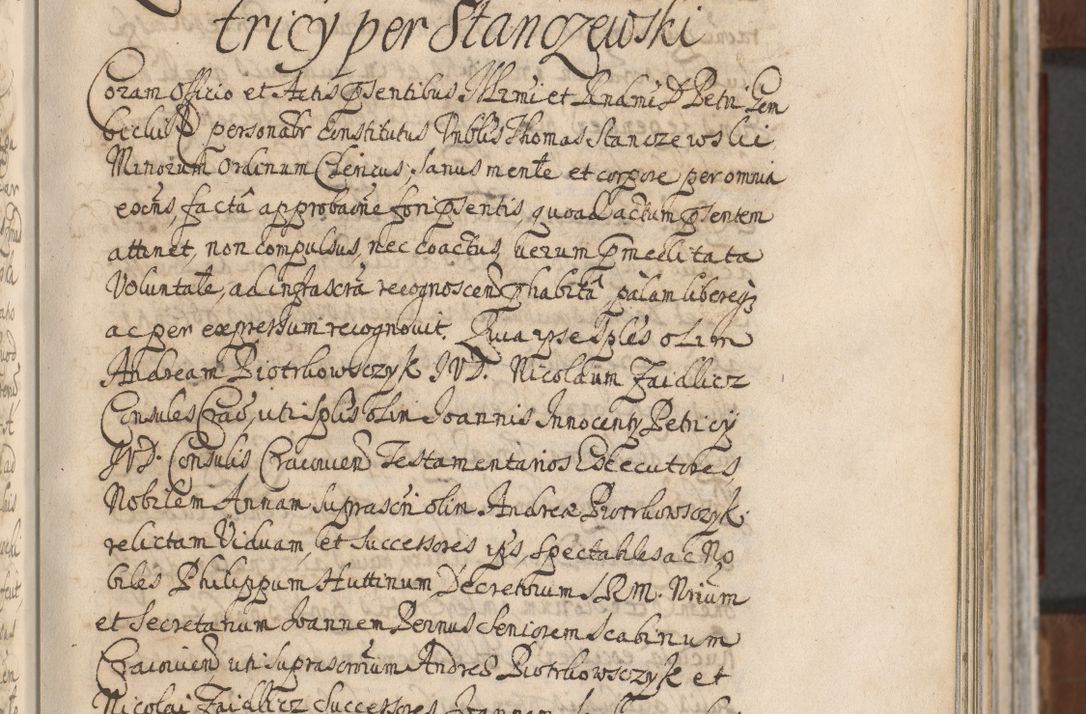 tricy per Stanczewski
Coram Officio et Actis psentibus Illrmi et Rndmi D Petri Gem
biclii personalr Constitutus Vnblis Thomas Stanczewski
Minorum Ordinum Clericus, sanus mente et corpore per omnia
eocns, factâ approbaone fori psentis, quoad actum psentem
attinet, non compulsus, nec coactus, uerum pmeditata
Voluntate, ad infrascra recognoscend phabitâ palam libereq
ac per expressum recognouit. Quia ipse Sples olim
Andream Piotrkowsczyk IVD. Nicolaum Zaidlicz
Consules Crac, uti Splis olim Joannis Innocenty Petricy
IVD. Consulis Cracouien Testamentarios Executores,
Nobilem Annam suprascri olim Andreæ Piotrkowsczyk
relictam Viduam, et Successores ips, Spectabiles ac No
biles Philippum Huttinum Decretorum SRM. Nrium
et Secretarium Joannem Pernus Seniorem Scabinum
Cracouien uti suprascrorum Andreæ Piotrkowsczyk et
Nicolai Zaidlicz Successores Joannem